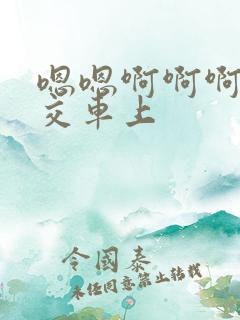 嗯嗯啊啊啊
交车上
令国泰
未经同意禁止转载